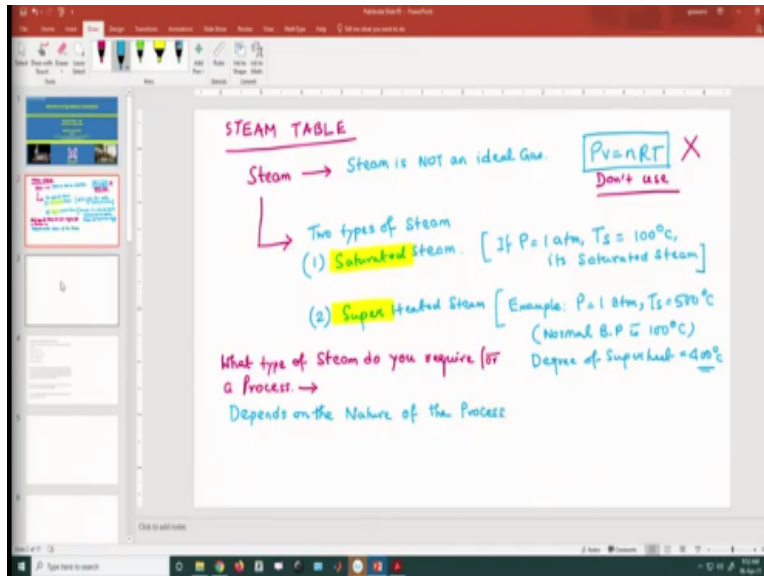 File Home Insert Draw Design Transitions Animations Slide Show Review View Help Tell me what you want to do
STEAM TABLE
Steam → Steam is NOT an ideal Gas.
PV=nRT X
Don't use
Two types of Steam
(1) Saturated Steam. [If P=1 atm, Ts = 100°C,
its Saturated Steam]
(2) Super Heated Steam [Example: P=1 atm, Ts=500°C
(Normal B.P is 100°C)
Degree of Superheat = 400°C
What type of Steam do you require for
a Process. →
Depends on the Nature of the Process
Click to add notes
Type here to search